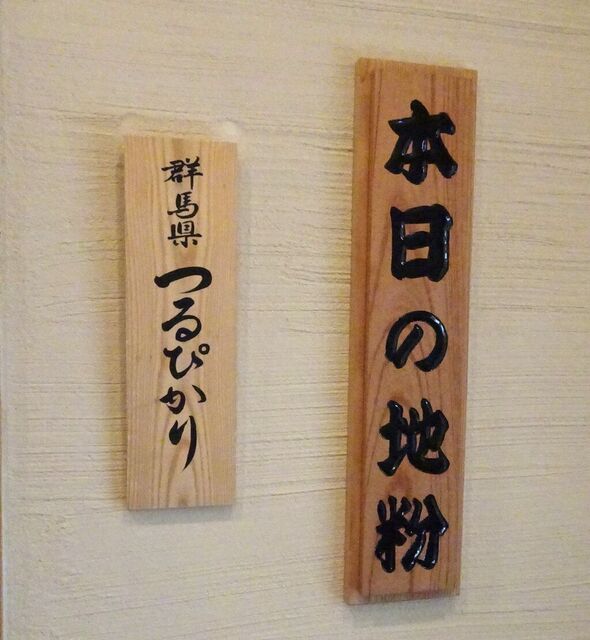 本日の地粉
群馬県 つるぴかり